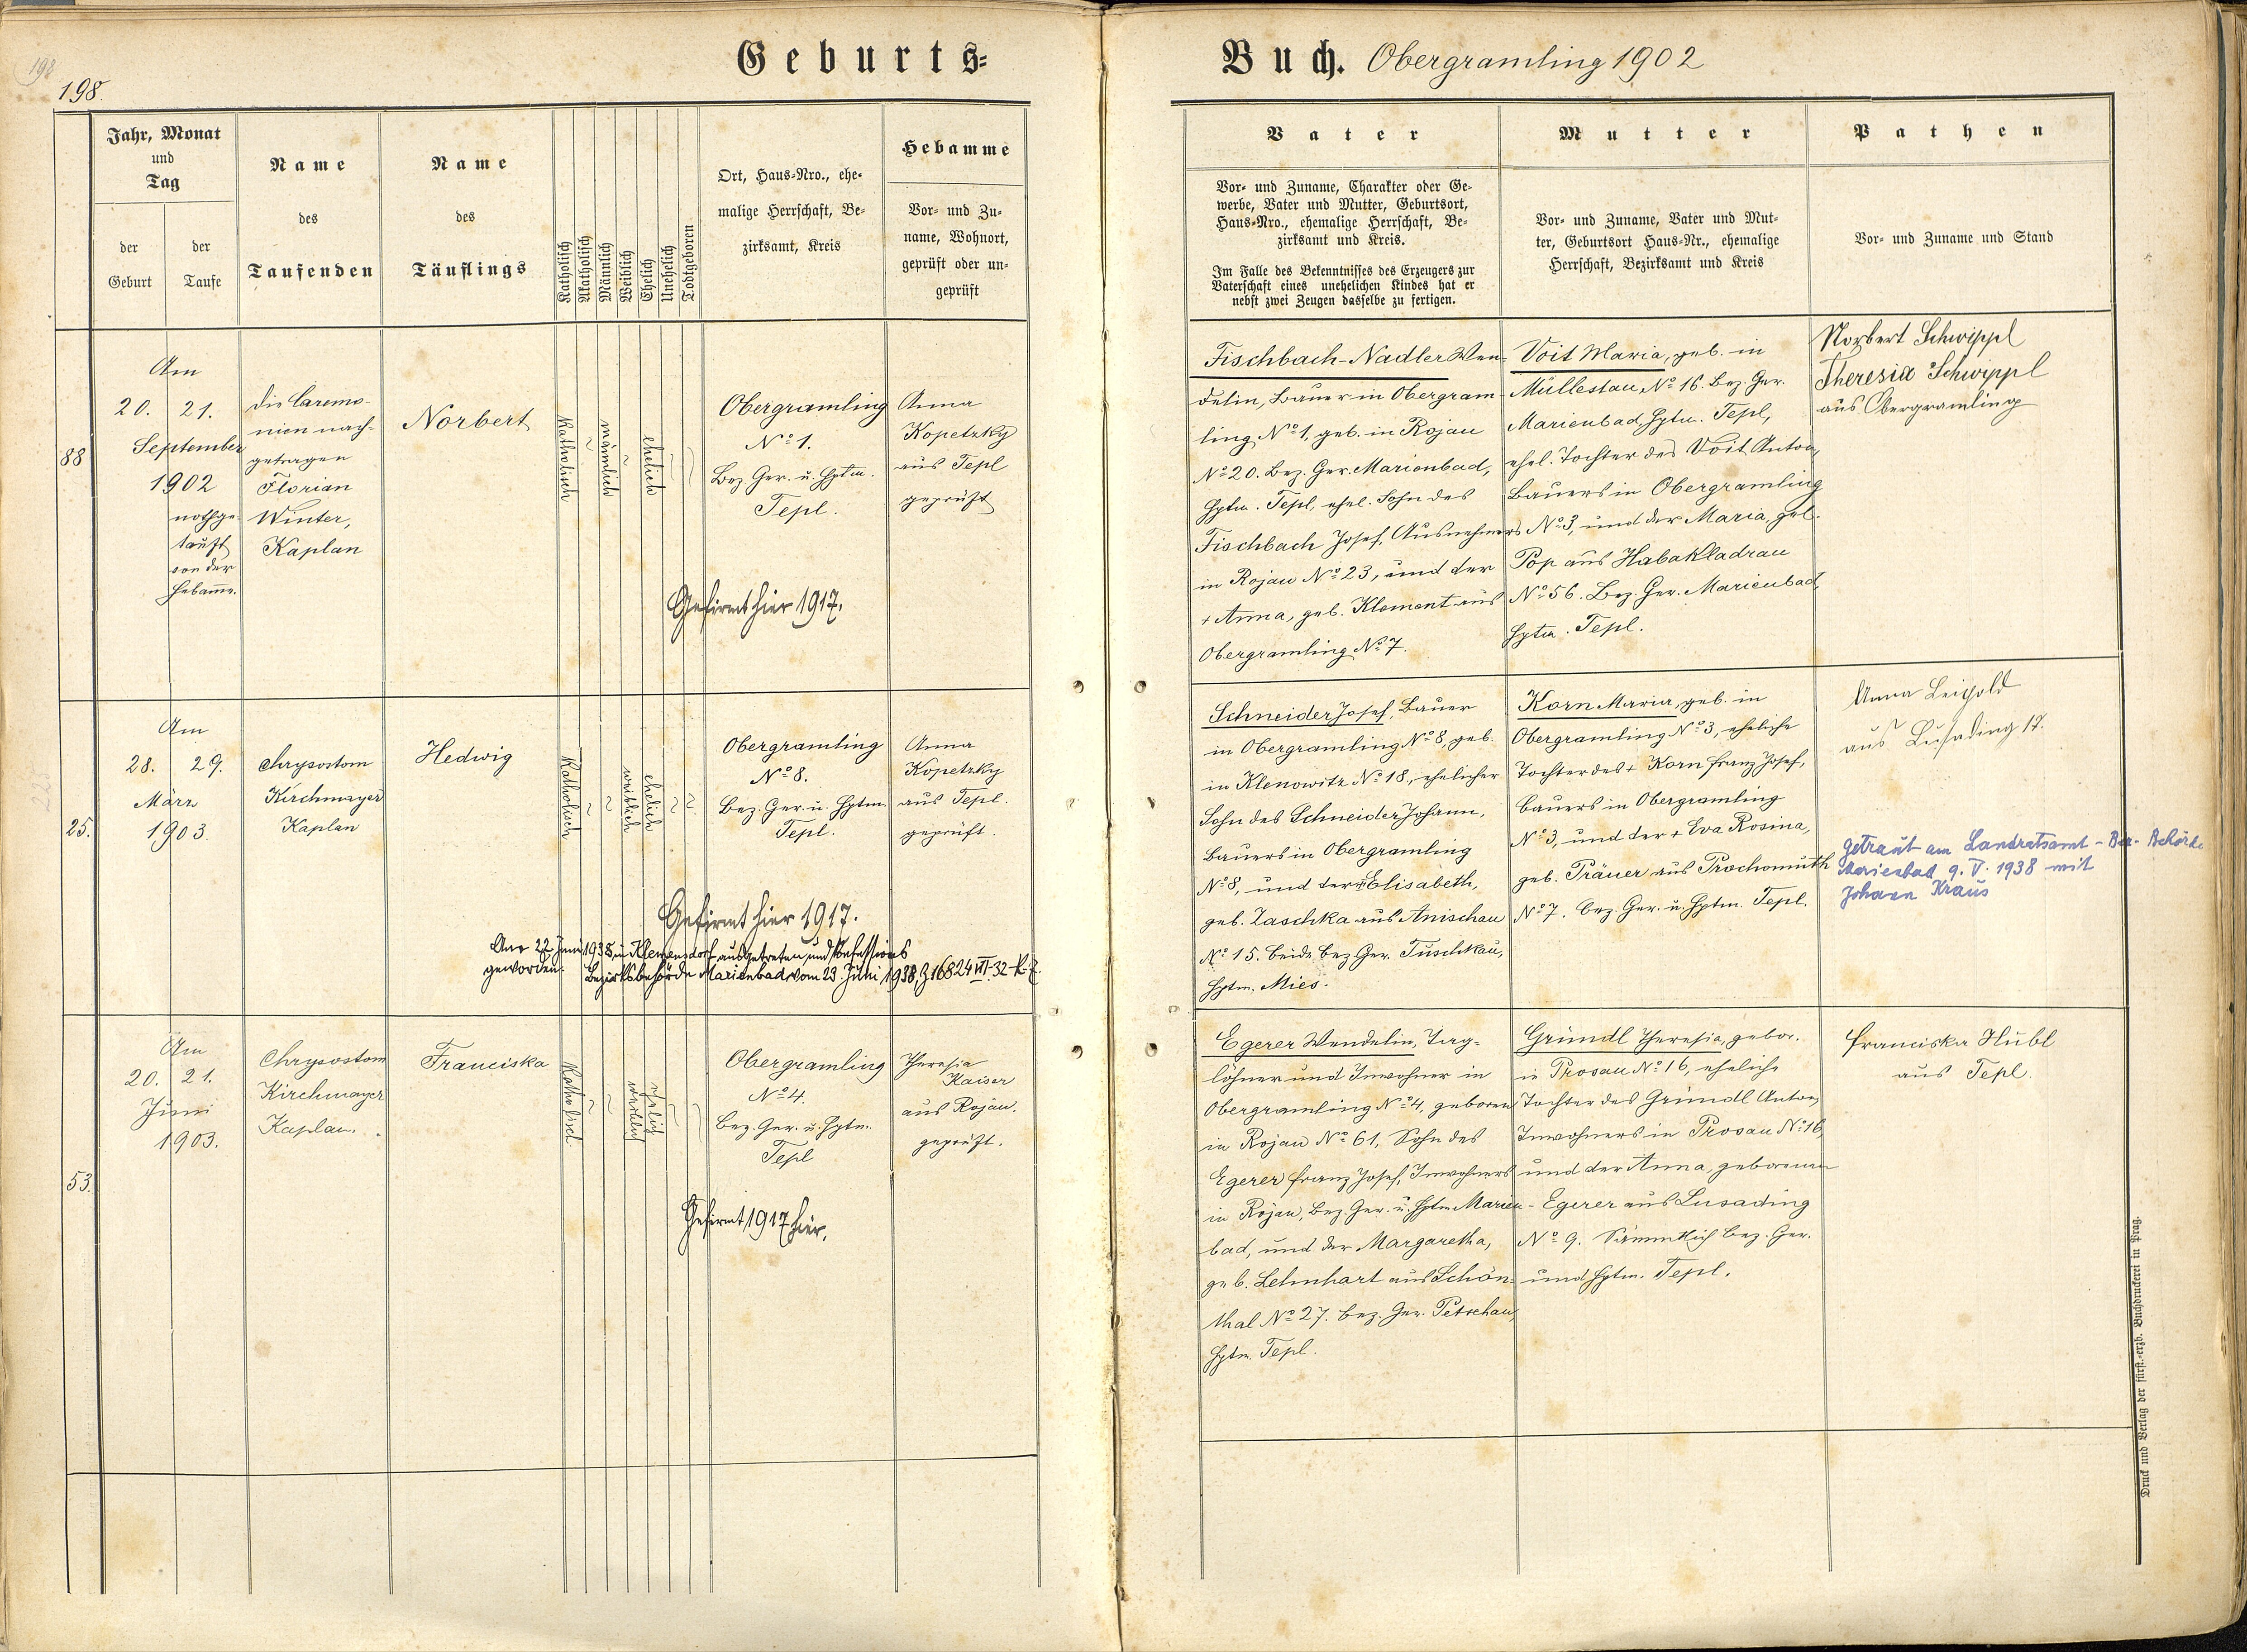 198
198.
Geburts=
Buch. Obergramling 1902
Jahr, Monat
und
Tag
der
Geburt
der
Taufe
Name
des
Taufenden
Name
des
Täuflings
Katholisch
Akatholisch
Männlich
Weiblich
Ehelich
Unehelich
Todtgeboren
Ort, Haus=Nro., ehe=
malige Herrschaft, Be=
zirksamt, Kreis
Hebamme
Vor= und Zu=
name, Wohnort,
geprüft oder un=
geprüft
Vater
Vor= und Zuname, Charakter oder Ge=
werbe, Vater und Mutter, Geburtsort,
Haus=Nro., ehemalige Herrschaft, Be=
zirksamt und Kreis.
Im Falle des Bekenntnisses des Erzeugers zur
Vaterschaft eines unehelichen Kindes hat er
nebst zwei Zeugen dasselbe zu fertigen.
Mutter
Vor= und Zuname, Vater und Mut=
ter, Geburtsort Haus=Nr., ehemalige
Herrschaft, Bezirksamt und Kreis
Pathen
Vor= und Zuname und Stand
88
Am
20. 21.
September
1902
nothge-
tauft
von der
Hebamme.
Die Caremo-
nien nach-
getragen
Florian
Winter,
Kaplan
Norbert
Katholisch
männlich
ehelich
Obergramling
No 1.
Bez Ger. u. Hptm.
Tepl.
Gefirmt hier 1917.
Anna
Kopetzky
aus Tepl
geprüft
Fischbach-Nadler Wen-
delin, Bauer in Obergram-
ling No 1, geb. in Rojau
No 20. Bez. Ger. Marienbad,
Hptm. Tepl, ehel. Sohn des
Fischbach Josef, Ausnehmers
in Rojau No 23, und der
+ Anna, geb. Klement aus
Obergramling No 7.
Voit Maria, geb. in
Müllestau No 16. Bez. Ger.
Marienbad Hptm. Tepl,
ehel. Tochter des Voit Anton,
Bauers in Obergramling
No 3, und der Maria, geb.
Pop aus Habakladrau
No 56. Bez. Ger. Marienbad,
Hptm. Tepl.
Norbert Schwippl
Theresia Schwippl
aus Obergramling
25.
Am
28. 29.
März
1903.
Chrysostom
Kirchmayer
Kaplan
Hedwig
Katholisch
weiblich
ehelich
Obergramling
No 8.
Bez. Ger. u. Hptm.
Tepl.
Gefirmt hier 1917.
Am 22. Juni 1938 in Klemensdorf ausgetreten und konfessions
geworden. Bezirksbehörde Marienbad vom 23. Juni 1938, Z 16824 VII-32-K-7.
Anna
Kopetzky
aus Tepl.
geprüft.
Schneider Josef, Bauer
in Obergramling No 8, geb.
in Klenowitz No 18, ehelicher
Sohn des Schneider Johann,
Bauers in Obergramling
No 8, und der Elisabeth,
geb. Zaschka aus Anischau
No 15. beide Bez Ger. Tuschkau,
Hptm. Mies.
Korn Maria, geb. in
Obergramling No 3, eheliche
Tochter des + Korn Franz Josef,
Bauers in Obergramling
No 3, und der + Eva Rosina,
geb. Präuer aus Prochomuth
No 7. Bez. Ger. u. Hptm. Tepl.
Anna Leipold
aus Lusading 17.
Getraut am Landratsamt - Bez. Behörde
Marienbad 9. V. 1938 mit
Johann Kraus
53.
Am
20. 21.
Juni
1903.
Chrysostom
Kirchmayer
Kaplan.
Franciska
Katholisch
weiblich
ehelich
Obergramling
No 4.
Bez. Ger. u. Hptm.
Tepl
Gefirmt 1917 hier.
Theresia
Kaiser
aus Rojau.
geprüft.
Egerer Wendelin, Tag-
löhner und Inwohner in
Obergramling No 4, geboren
in Rojau No 61, Sohn des
Egerer Franz Josef, Inwohners
in Rojau, Bez. Ger. u. Hptm Marien-
bad, und der Margaretha,
geb. Lehnhart aus Schön-
thal No 27. Bez. Ger. Petschau,
Hptm. Tepl.
Gründl Theresia, gebor.
in Prosau No 16, eheliche
Tochter des Gründl Anton,
Inwohners in Prosau No 16,
und der Anna, geborenen
Egerer aus Lusading
No 9. Sämmtlich Bez. Ger.
und Hptm. Tepl.
Franciska Hübl
aus Tepl.
Druck und Verlag der fürst.=erzb. Buchdruckerei in Prag.